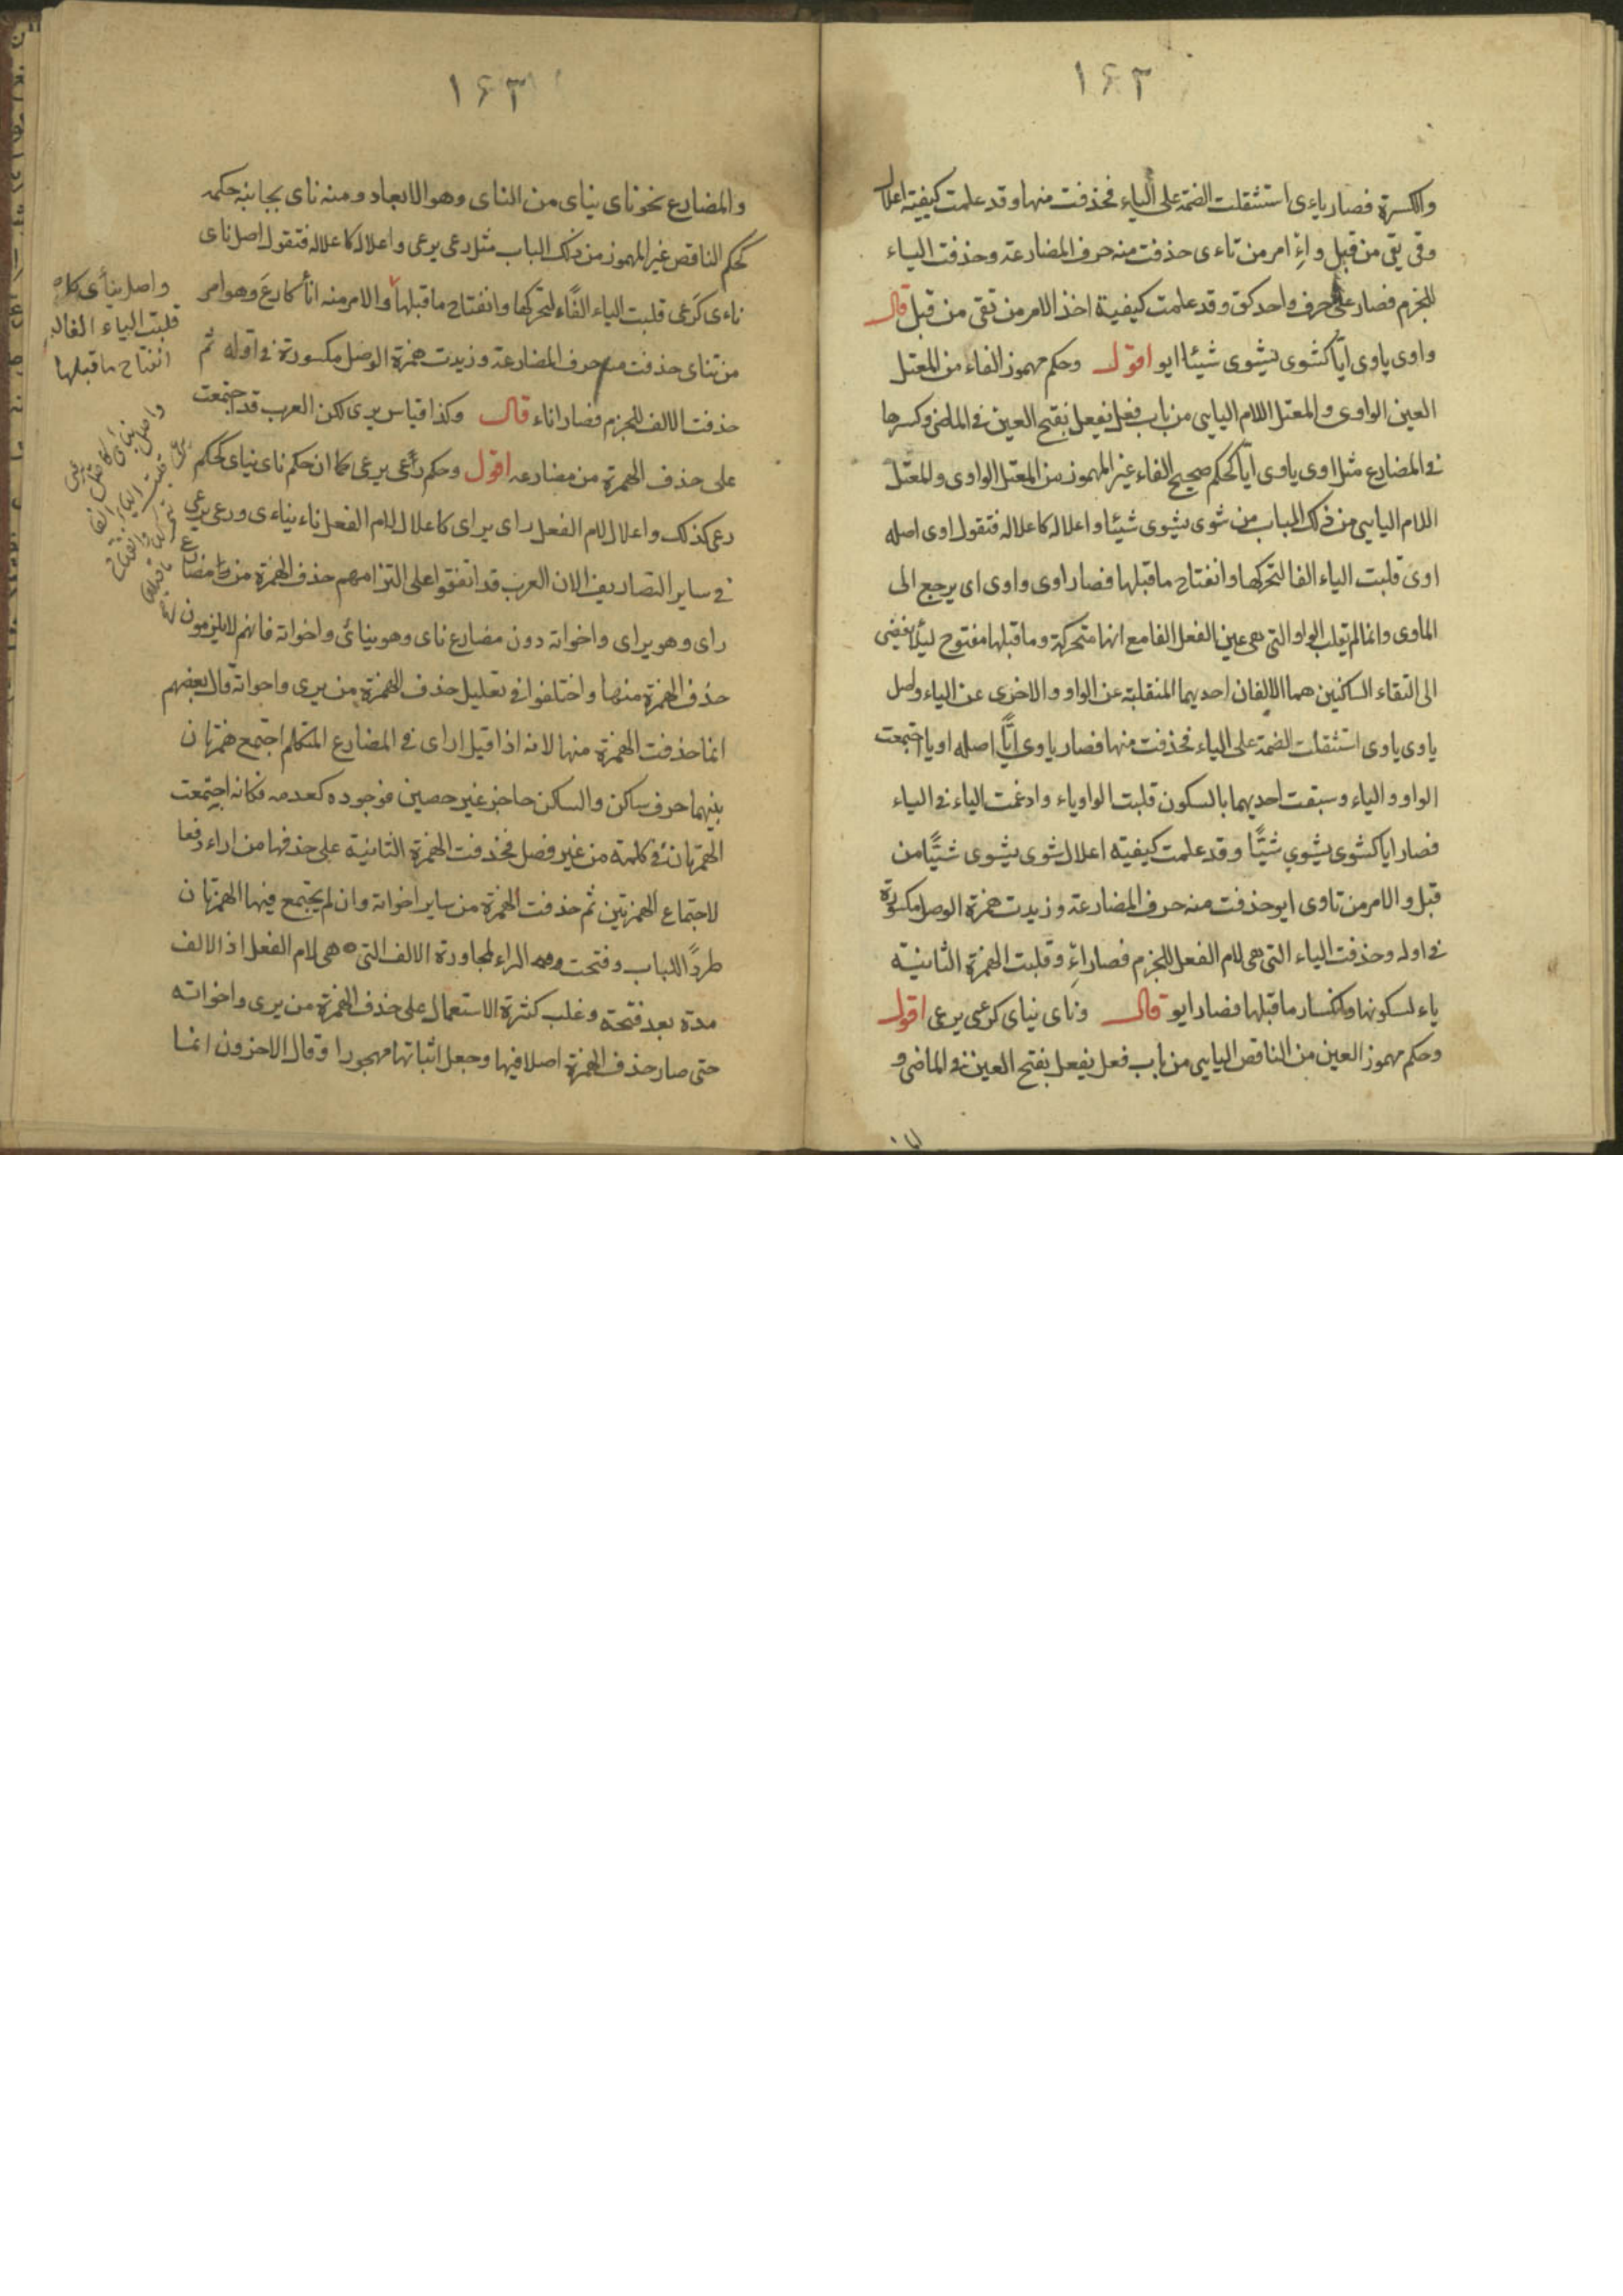 ١٤٢
والكسرة فصار ياءى استثقلت الضمة على الياء فحذفت منها وقد علمت كيفية اعلال
وقى يقى من قبل واءِ امر من تاءى حذفت منه حرف المضارعة وحذفت الياء
للجزم فصار على حرف واحد كق وقد علمت كيفية اخذ الامر من تقى من قبل قال
واوى ياوى ايّا كشوى يشوى شيئا ايو اقول وحكم مهموز الفاء من المعتل
العين الواوى والمعتل اللام اليايى من باب فعل يفعل بفتح العين فى الماضى وكسرها
فى المضارع مثل اوى ياوى ايّا كحكم صحيح الفاء غير المهموز من المعتل الواوى والمعتل
اللام اليايى من ذلك الباب من شوى يشوى شيئا واعلاله كاعلاله فتقول اوى اصله
اوى قلبت الياء الفا لتحركها وانفتاح ماقبلها فصار اوى واوى اى يرجع الى
الماوى وانما لم يقلب الواو التى هى عين الفعل الفا مع انها متحركة وما قبلها مفتوح لئلا يفضى
الى التقاء الساكنين هما الالفان احديهما المنقلبة عن الواو والاخرى عن الياء واصل
ياوى ياوى استثقلت الضمة على الياء فحذفت منها فصار ياوى ايّا اصله اويا اجتمعت
الواو والياء وسبقت احديهما بالسكون قلبت الواو ياء وادغمت الياء فى الياء
فصار ايا كشوى يشوى شيّا وقد علمت كيفية اعلال شوى يشوى شيّا من
قبل والامر من تاوى ايو حذفت منه حرف المضارعة وزيدت همزة الوصل مكسورة
فى اوله وحذفت الياء التى هى لام الفعل للجزم فصار اءءِ وقلبت الهمزة الثانية
ياء لسكونها وانكسار ماقبلها فصار ايو قال وناى يناى كرعى يرعى اقول
وحكم مهموز العين من الناقص اليايى من باب فعل يفعل بفتح العين فى الماضى و
١٤٣
والمضارع نحو ناى يناى من الناى وهو الابعاد ومنه ناى بجانبه حكمه
كحكم الناقص غير المهموز من ذلك الباب مثل رعى يرعى واعلاله كاعلاله فتقول اصل ناى
ناءى كرعى قلبت الياء الفاء لتحركها وانفتاح ماقبلها والامر منه انأ كارعَ وهو امر
من تناى حذفت منه حرف المضارعة وزيدت همزة الوصل مكسورة فى اوله ثم
حذفت الالف للجزم فصار اناء قال وكذا قياس يرى لكن العرب قد اجتمعت
على حذف الهمزة من مضارعه اقول وحكم رأى يرعى كما ان حكم ناى يناى كحكم
رعى كذلك واعلال لام الفعل راى يراى كاعلال لام الفعل ناء يناءى ورعى يرعى
فى ساير التصاريف الا ان العرب قد اتفقوا على التزامهم حذف الهمزة من مضارع
راى وهو يراى واخواته دون مضارع ناى وهو ينائ واخواته فانهم لا يلزمون
حذف الهمزة منها واختلفوا فى تعليل حذف الهمزة من يرى واخواته قال بعضهم
انما حذفت الهمزة منها لانه اذا قيل اراى فى المضارع المتكلم اجتمع همزتان
بينهما حرف ساكن والساكن حاجز غير حصين فوجوده كعدمه فكانه اجتمعت
الهمزتان فى كلمة من غير فصل فحذفت الهمزة الثانية على حذفها من اراء رفعا
لاجتماع الهمزتين ثم حذفت الهمزة من ساير اخواته وان لم يجتمع فيها الهمزتان
طردًا للباب وفتحت الراء لمجاورة الالف التى هى لام الفعل اذ الالف
مدة بعد فتحة وغلب كثرة الاستعمال على حذف الهمزة من يرى واخواته
حتى صار حذف الهمزة اصلا فيها وجعل اثباتها مهجورا وقال الاخرون انما
واصل ينأى
قلبت الياء الفا
انفتاح ماقبلها